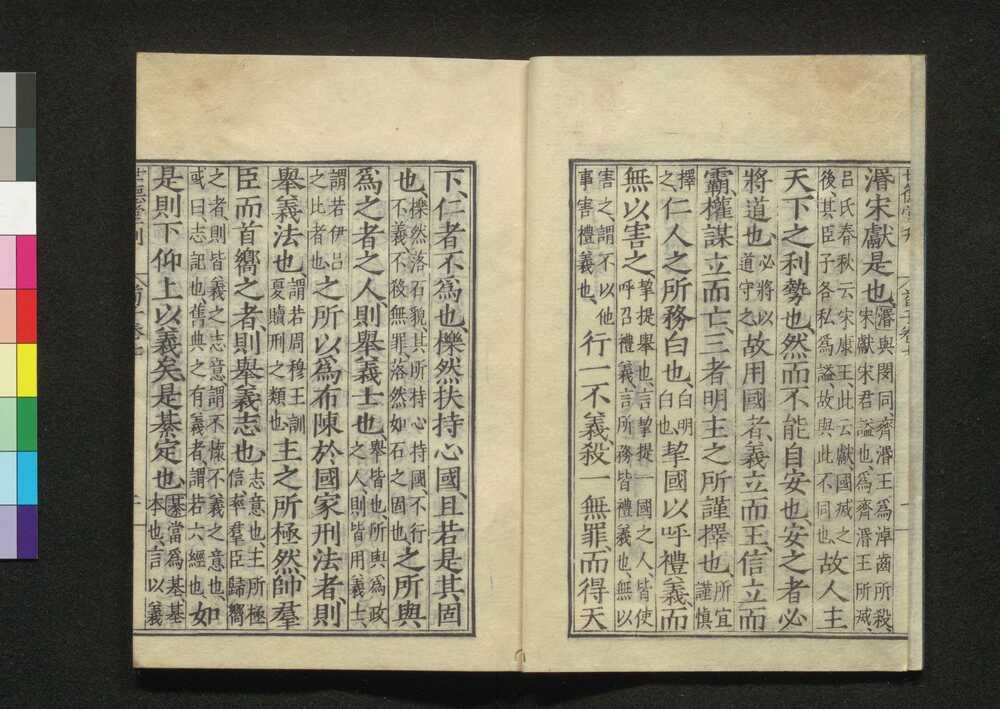 湣宋獻是也湣與閔同齊湣王爲淖齒所殺宋獻宋君謚也爲齊湣王所滅
呂氏春秋云宋康王此云獻國滅之後其臣子各私爲謚故與此不同也故人主
天下之利勢也然而不能自安也安之者必
將道也必將以道守之故用國者義立而王信立而
霸權謀立而亡三者明主之所謹擇也所宜謹慎
擇之仁人之所務白也白明白也挈國以呼禮義而
無以害之挈提舉也言挈提一國之人皆使呼召禮義言所務皆禮義也無以
害之謂不以他事害禮義也行一不義殺一無罪而得天
下仁者不爲也擽然扶持心國且若是其固
也擽然落石貌其所持心持國不行不義不殺無罪落然如石之固也之所與
爲之者之人則舉義士也舉皆也所與爲政之人則皆用義士
謂若伊呂之比者也之所以爲布陳於國家刑法者則
舉義法也謂若周穆王訓夏贖刑之類也主之所極然帥羣
臣而首嚮之者則舉義志也志意也主所極信率羣臣歸嚮
之者則皆義之志意謂不懷不義之意也或曰志記也舊典之有義者謂若六經也如
是則下仰上以義矣是綦定也綦當爲基基本也言以義